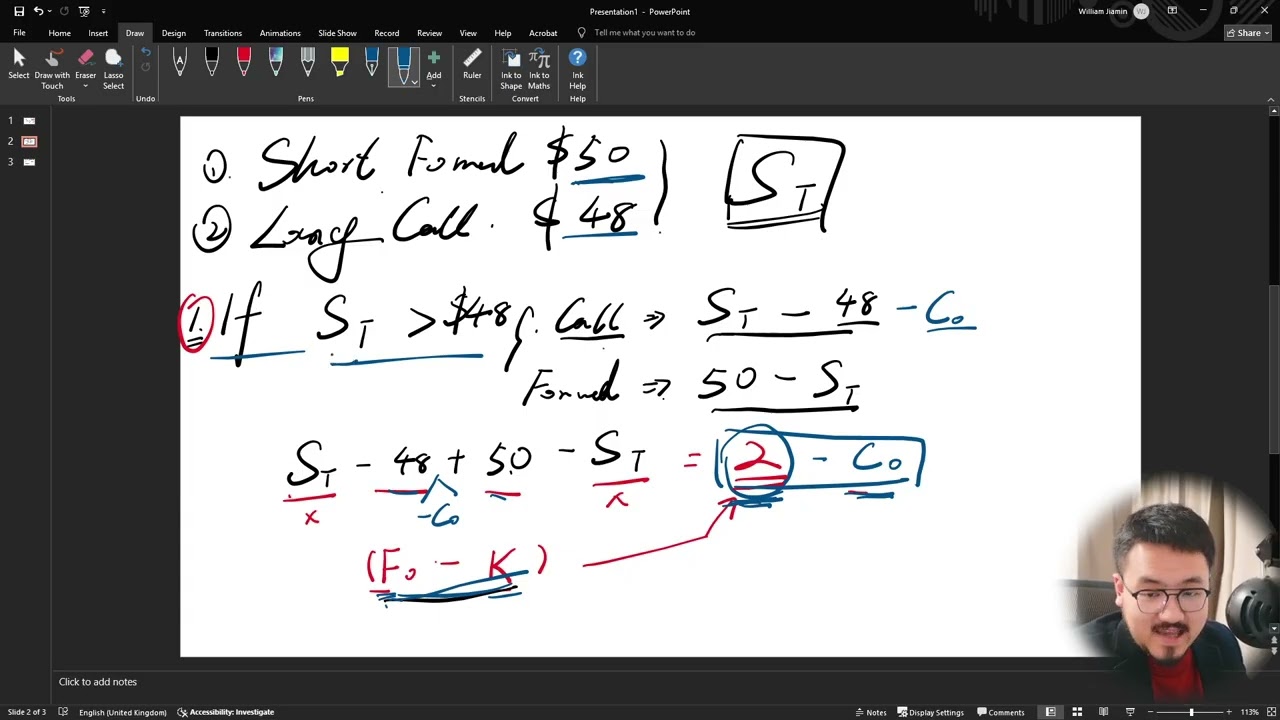 Presentation1 - PowerPoint
William Jiamin
WJ
File Home Insert Draw Design Transitions Animations Slide Show Record Review View Help Acrobat Tell me what you want to do
Share
Select
Draw with Touch
Eraser
Lasso Select
Add
Ruler
Ink to Shape
Ink to Maths
Ink Help
Tools Undo Pens Stencils Convert Help
1
2
3
①. Short Forward $50
② Long Call. $48
S_T
1. If S_T > $48 Call ⇒ S_T - 48 - C₀
Forward ⇒ 50 - S_T
S_T - 48 + 50 - S_T = 2 - C₀
x -C₀ x
(F₀ - K)
Click to add notes
Slide 2 of 3 English (United Kingdom) Accessibility: Investigate Notes Display Settings Comments 113%